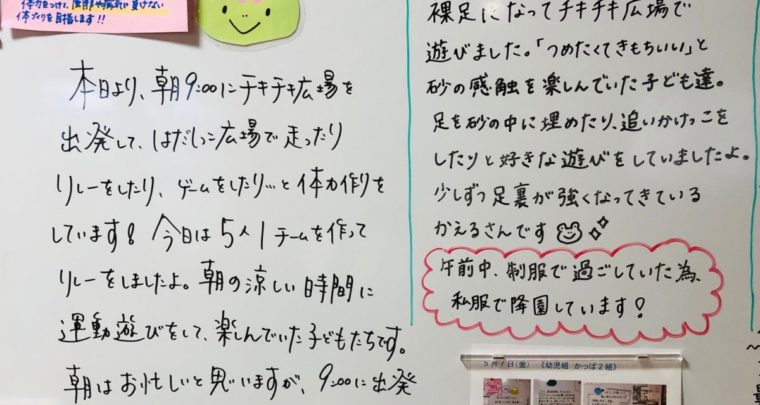 体力をつけ、怪我や病気に負けない
体づくりを目指します！！
本日より、朝9:00にチキチキ広場を
出発して、はだしっこ広場で走ったり
リレーをしたり、ゲームをしたり…と体力作りを
しています！今日は5人1チームを作って
リレーをしましたよ。朝の涼しい時間に
運動遊びをして、楽しんでいた子どもたちです。
朝はお忙しいと思いますが、9:00に出発
裸足になってチキチキ広場で
遊びました。「つめたくてきもちいい」と
砂の感触を楽しんでいた子ども達。
足を砂の中に埋めたり、追いかけっこを
したりと好きな遊びをしていましたよ。
少しずつ足裏が強くなってきている
かえるさんです
午前中、制服で過ごしていた為、
私服で降園しています！
5月7日(金) 《幼児組 かっぱ2組》